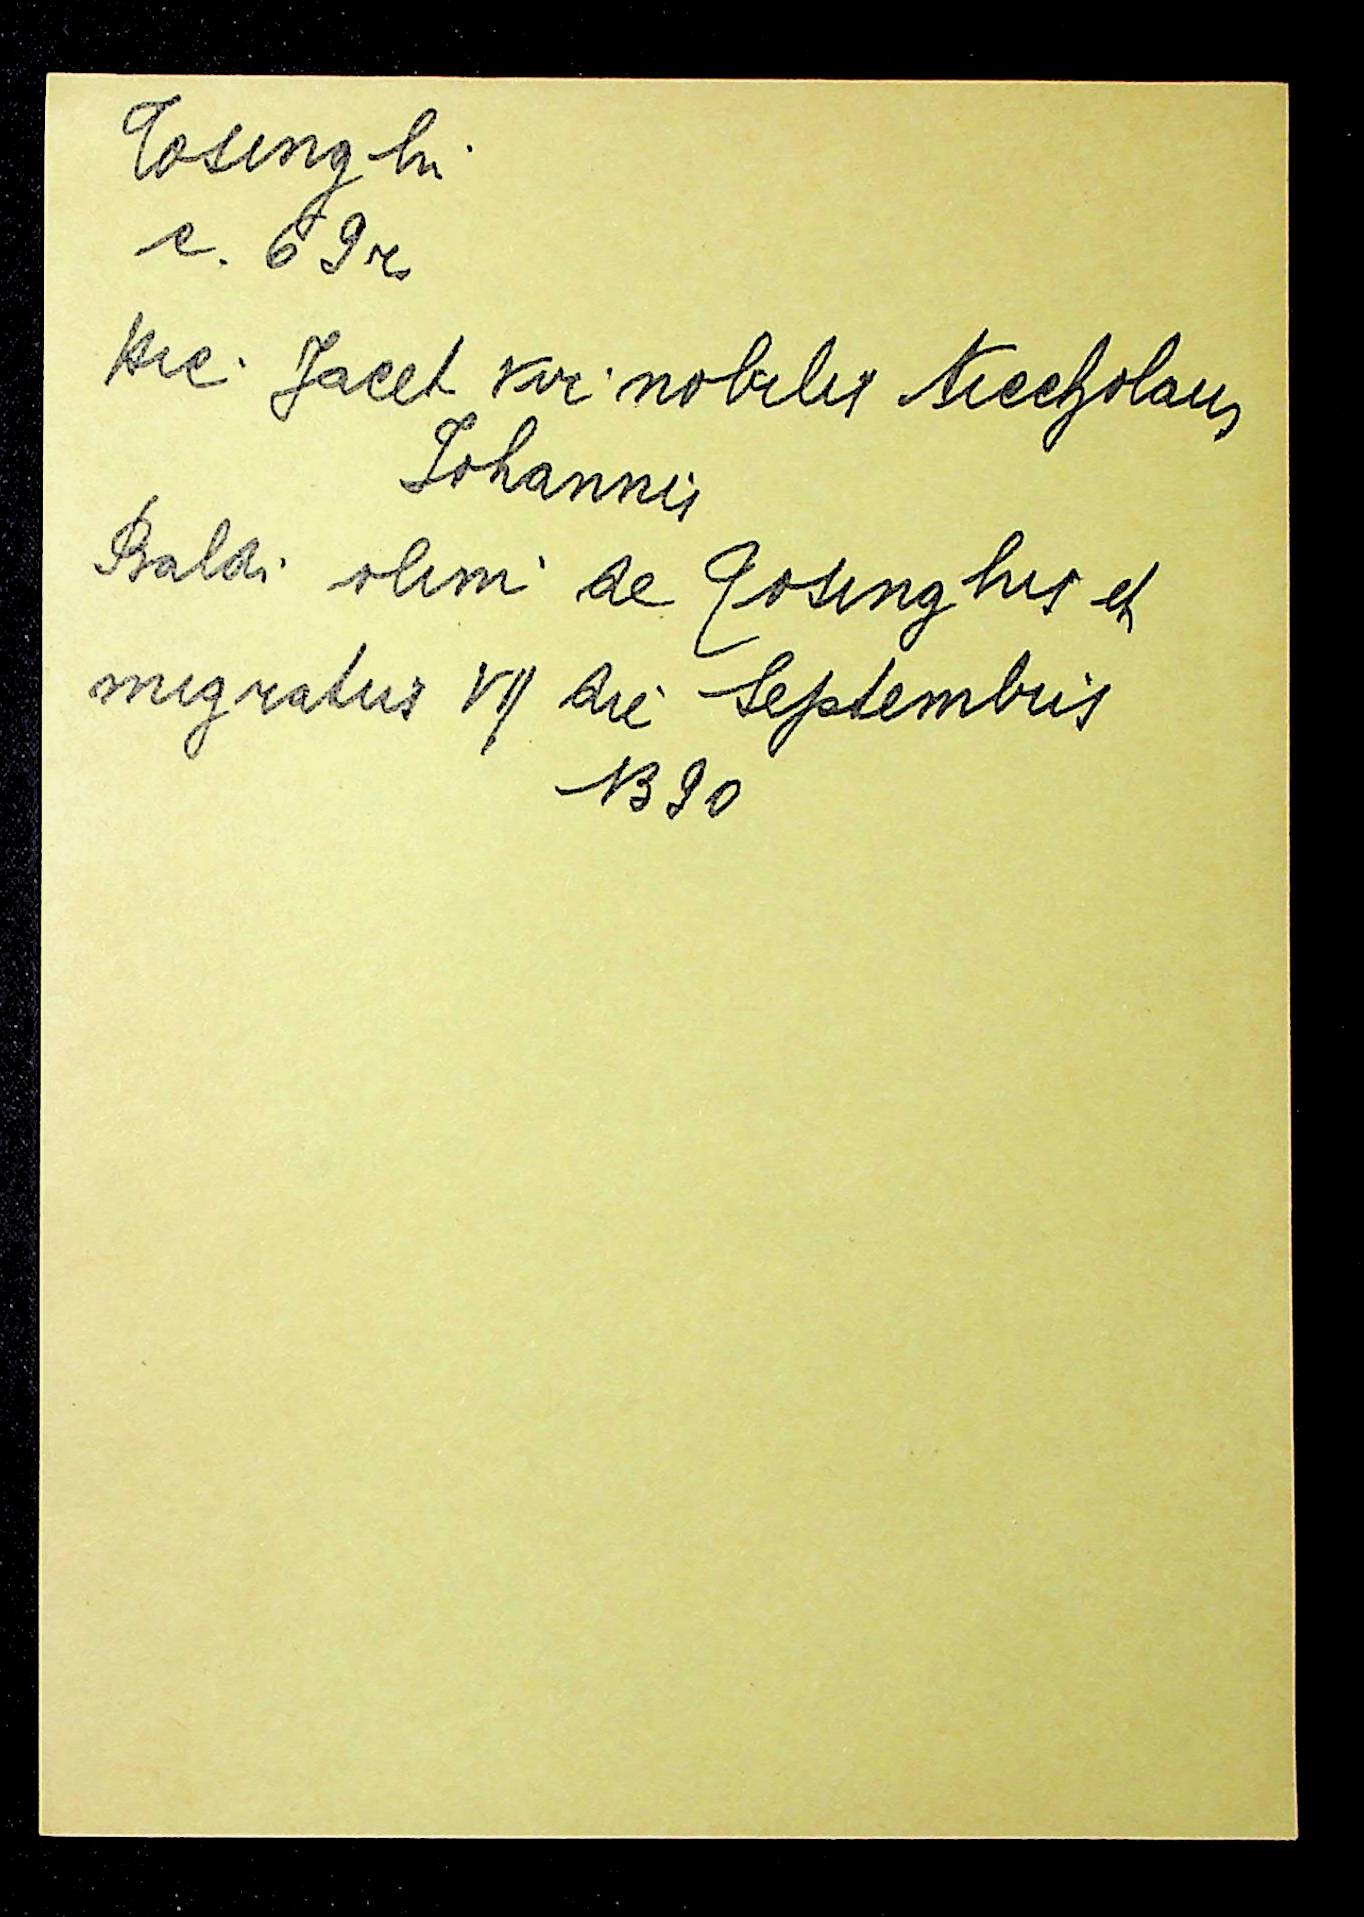 Tosinghi
c. 69r
Hic Jacet vir nobilis Niccholaus
Johannis
Baldi olim de Tosinghis et
migratus VIJ die Septembris
1390